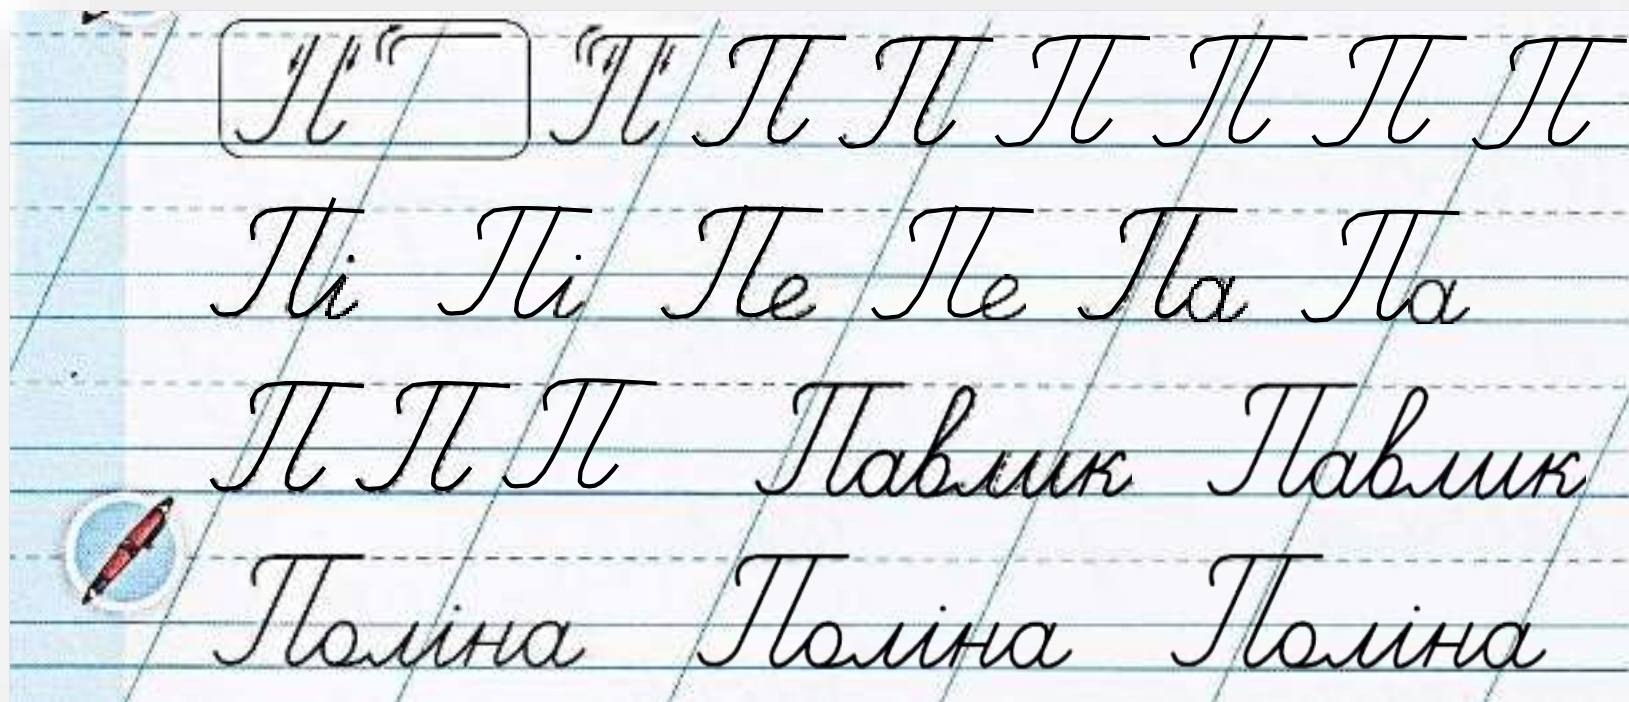 П П П П П П П П
Пі Пі Пе Пе Па Па
П П П Павлик Павлик
Поліна Поліна Поліна